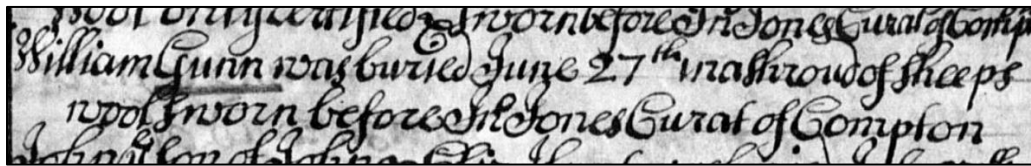 wool only certified & sworn before Jn Jones Curat of Comp
William Gunn was buried June 27th in a shroud of sheeps
wool Sworn before Jn Jones Curat of Compton
John son of John